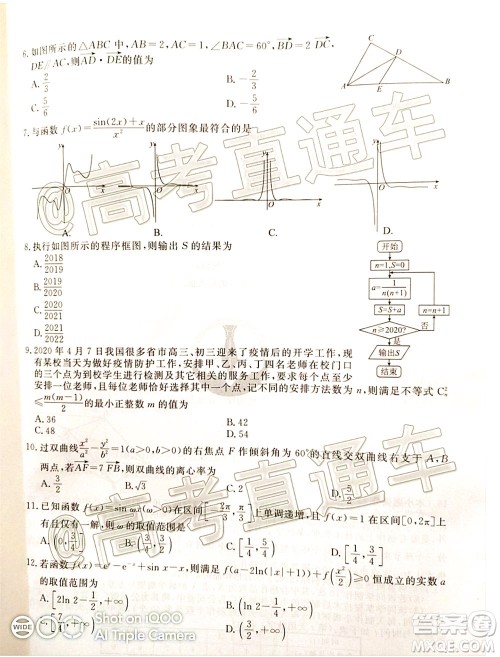 6.如图所示的△ABC中,AB=2,AC=1,∠BAC=60°,BD=2DC,
DE//AC,则AD·DE的值为
A.2/3 B.-2/3
C.5/6 D.-5/6
C
D
A E B
7.与函数f(x)=(sin(2x)+x)/x²的部分图象最符合的是
y y y y
O x O x O x O x
A. B. C. D.
8.执行如图所示的程序框图,则输出S的结果为
A.2018/2019
B.2019/2020
C.2020/2021
D.2021/2022
开始
n=1,S=0
a=1/(n(n+1))
S=S+a
n=n+1
n≥2020?
否
是
输出S
结束
9.2020年4月7日我国很多省市高三、初三迎来了疫情后的开学工作,现
有某校当天为做好疫情防护工作,安排甲、乙、丙、丁四名老师在校门口
的三个点为到校学生进行检测及其它相关的服务工作,要求每个点至少
安排一位老师,且每位老师恰好选择其中一个点,记不同的安排方法数为n,则满足不等式C
≤m(m-1)/2的最小正整数m的值为
A.36 B.42
C.48 D.54
10.过双曲线x²/a²-y²/b²=1(a>0,b>0)的右焦点F作倾斜角为60°的直线交双曲线右支于A,B
两点,若AF=7FB,则双曲线的离心率为
A.3/2 B.√3 C.2 D.
11.已知函数f(x)=sin ωx(ω>0)在区间[ ]上单调递增,且f(x)=1在区间[0,2π]上
有且仅有一解,则ω的取值范围是
A.(0,3/4) B. C.[1/4, D.
12.若函数f(x)=eˣ-e⁻ˣ+sin x-x,则满足f(a-2ln(|x|+1))+f(x²/2)≥0恒成立的实数a
的取值范围为
A.[2ln 2-1/2,+∞) B.
C. D.[1/2,+∞)
@高考直通车
SHOT ON iQOO
AI Triple Camera
WIDE
答案圈